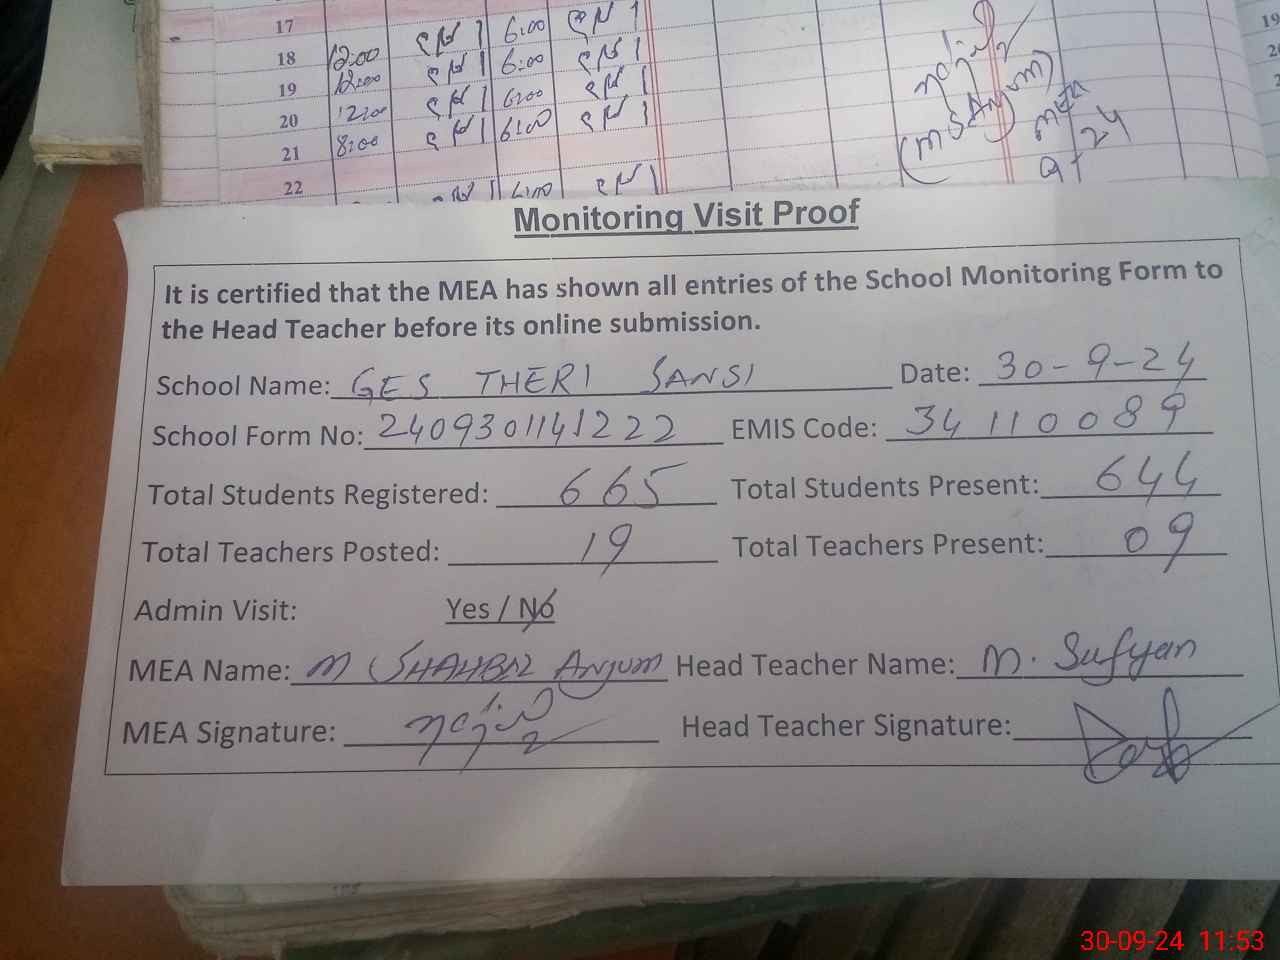 17
18 12:00 6:00
19 12:00 6:00
20 12:00 6:00
21 8:00 6:00
22 6:00
(M S ANJUM)
MEA
9/24
19
Monitoring Visit Proof
It is certified that the MEA has shown all entries of the School Monitoring Form to
the Head Teacher before its online submission.
School Name: GES THERI SANSI Date: 30-9-24
School Form No: 2409301141222 EMIS Code: 34110089
Total Students Registered: 665 Total Students Present: 644
Total Teachers Posted: 19 Total Teachers Present: 09
Admin Visit: Yes / No
MEA Name: M SHAHBAZ ANJUM Head Teacher Name: M. Sufyan
MEA Signature: Head Teacher Signature:
30-09-24 11:53